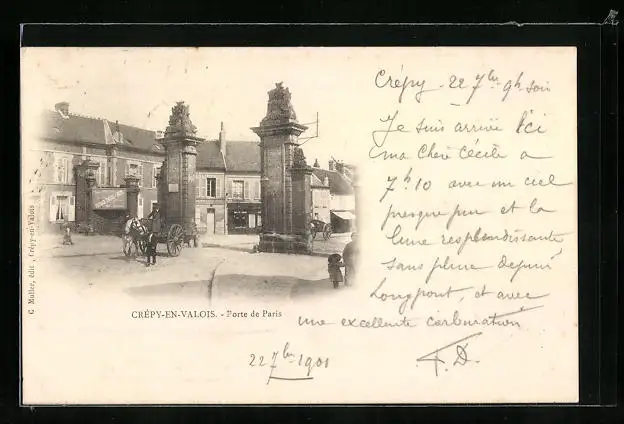 Crépy - 22 7bre 9h soir
Je suis arrivé ici
ma chère Cécile a
7h10 avec un ciel
presque pur et la
lune resplendissante
sans pluie depuis
Longpont, et avec
une excellente carburation
F.D.
22 7bre 1901
CRÉPY-EN-VALOIS. - Porte de Paris
C Muller, édit., Crépy-en-Valois